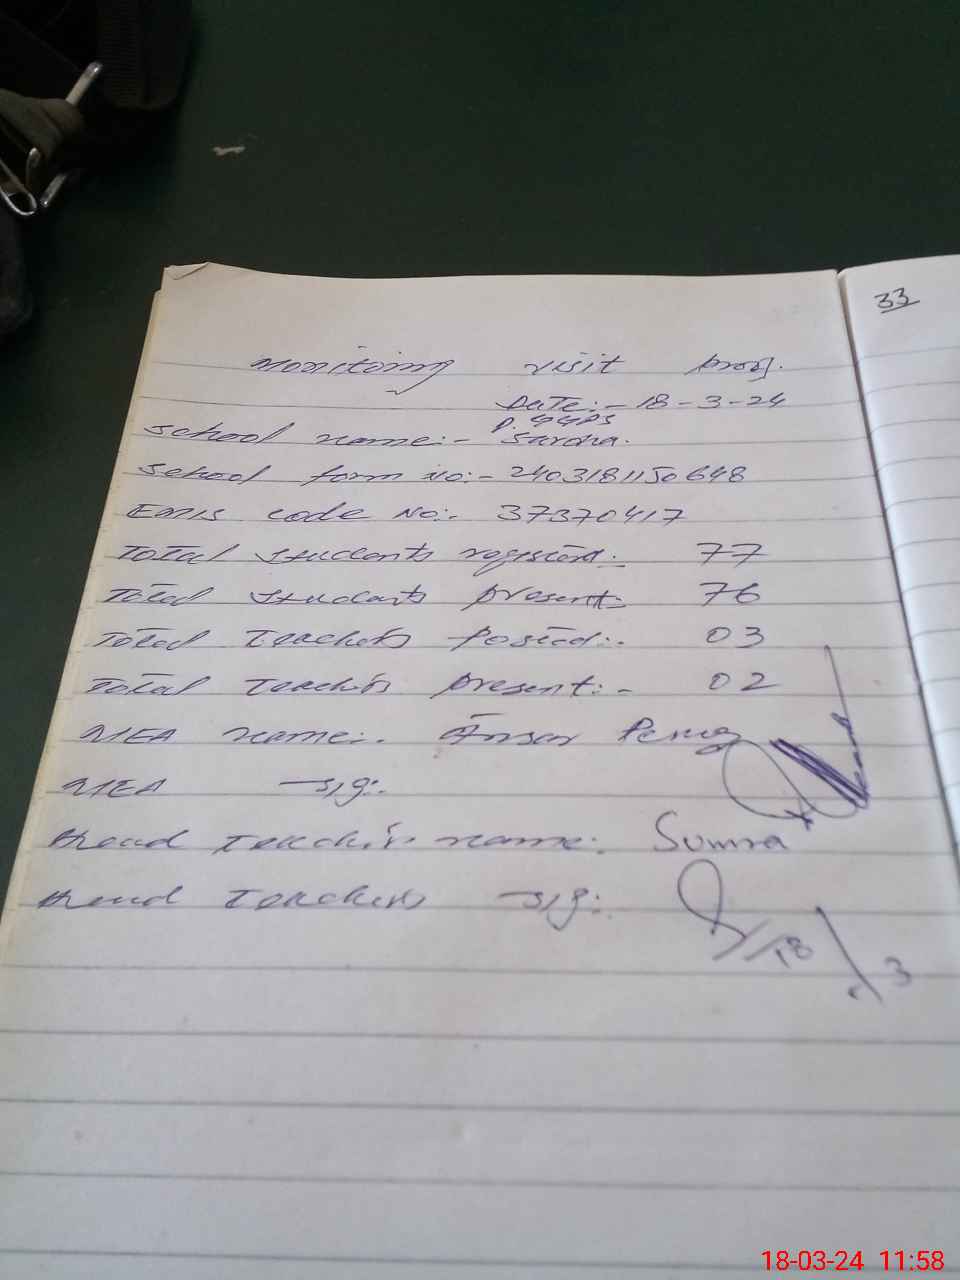 33
Monitoring visit proof.
Date:- 18-3-24
School name:- Sarona.
School form No:- 2403181150648
Emis code No:- 37370417
Total students registerd:- 77
Total students present:- 76
Total teachers Posted:- 03
Total teachers present:- 02
MEA name:- Ansar
MEA sig:-
Head teacher name: Sumra
Head teachers sig:
18/3
18-03-24 11:58